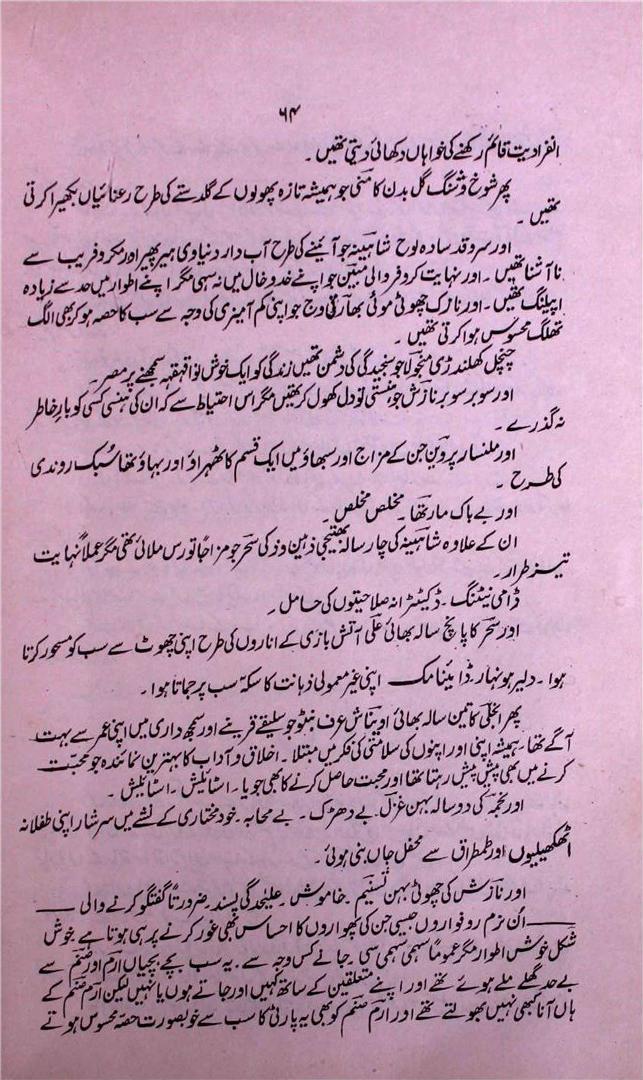 ۶۴
انفرادیت قائم رکھنے کی خواہاں دکھائی دیتی تھیں۔
پھر شوخ و شنگ گل بدن کامنی جو ہمیشہ تازہ پھولوں کے گلدستے کی طرح رعنائیاں بکھیرا کرتی
تھیں۔
اور سرو قد سادہ لوح شاہینہ جو آئینے کی طرح آب دار دنیاوی ہیر پھیر اور مکر و فریب سے
نا آشنا تھیں۔ اور نہایت کروفر والی مبین جو اپنے خد و خال میں نہ سہی مگر اپنے اطوار میں حد سے زیادہ
اپیلنگ تھیں۔ اور نازک چھوئی موئی بھارتی وج جو اپنی کم آمیزی کی وجہ سے سب کا حصہ ہو کر بھی الگ
تھلگ محسوس ہوا کرتی تھیں۔
چنچل کھلنڈری منجولا جو سنجیدگی کی دشمن تھیں زندگی کو ایک خوش نوا قہقہہ سمجھنے پر مصر۔
اور سوبر سوبر نازش جو ہنستی تو دل کھول کر تھیں مگر اس احتیاط سے کہ ان کی ہنسی کسی کو بارِ خاطر
نہ گذرے۔
اور ملنسار پروین جن کے مزاج اور سبھاؤ میں ایک قسم کا ٹھہراؤ اور بہاؤ تھا سُبک رو ندی
کی طرح۔
اور بے باک مار تھا۔ مخلص مخلص۔
ان کے علاوہ شاہینہ کی چار سالہ بھتیجی ذہین و ذکی سحر جو مزاجاً تو رس ملائی تھی مگر عملاً نہایت
تیز طرار۔
ڈامی نیٹنگ۔ ڈکٹیٹرانہ صلاحیتوں کی حامل۔
اور سحر کا پانچ سالہ بھائی علی آتش بازی کے اناروں کی طرح اپنی چھوٹ سے سب کو مسحور کرتا
ہوا۔ دلیر ہونہار۔ ڈائینامک اپنی غیر معمولی ذہانت کا سکہ سب پر جماتا ہوا۔
پھر انجلی کا تین سالہ بھائی اویناش عرف بنٹو جو سلیقے قرینے اور سمجھ داری میں اپنی عمر سے بہت
آگے تھا۔ ہمیشہ اپنی اور اپنوں کی سلامتی کی فکر میں مبتلا۔ اخلاق و آداب کا بہترین نمائندہ جو محبت
کرنے میں بھی پیش پیش رہتا تھا اور محبت حاصل کرنے کا بھی جویا۔ اسٹائیلش۔ اسٹائیلش۔
اور نجمہ کی دو سالہ بہن غزل۔ بے دھڑک۔ بے محابہ۔ خود مختاری کے نشے میں سرشار اپنی طفلانہ
اٹھکھیلیوں اور طمطراق سے محفل جاں بنی ہوئی۔
اور نازش کی چھوٹی بہن تسنیم۔ خاموش۔ علیٰحدگی پسند۔ ضرورتاً گفتگو کرنے والی ——
—— اُن نرم رو فواروں جیسی جن کی پھواروں کا احساس بھی غور کرنے پر ہی ہوتا ہے۔ خوش
شکل خوش اطوار مگر عموماً سہمی سہمی سی۔ جانے کس وجہ سے۔ یہ سب بچے بچیاں ارم اور صنم سے
بے حد گھلے ملے ہوئے تھے اور اپنے متعلقین کے ساتھ کہیں اور جاتے ہوں یا نہیں لیکن ارم صنم کے
ہاں آنا کبھی نہیں بھولتے تھے اور ارم صنم کو بھی یہ پارٹی کا سب سے خوبصورت حصہ محسوس ہوتے